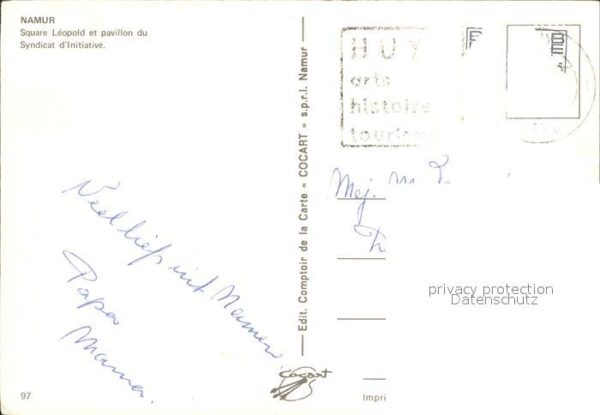 NAMUR
Square Léopold et pavillon du
Syndicat d'Initiative.
Veel liefs uit Namen.
Papa
Mama.
97
Edit. Comptoir de la Carte « COCART » s.p.r.l. Namur
cocart
HUY
arts
histoire
tourisme
Mej. M.
privacy protection
Datenschutz
Impri